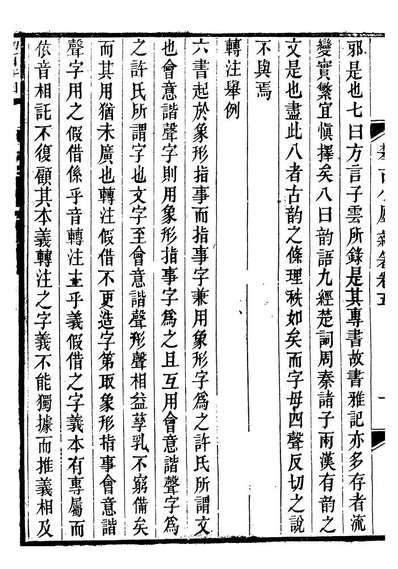 攀古小廬雜著卷五
一
邪是也七曰方言子雲所錄是其專書故書雅記亦多存者流
變實繁宜慎擇矣八曰韵語九經楚詞周秦諸子兩漢有韵之
文是也盡此八者古韵之條理秩如矣而字母四聲反切之說
不與焉
轉注舉例
六書起於象形指事而指事字兼用象形字爲之許氏所謂文
也會意諧聲字則用象形指事字爲之且互用會意諧聲字爲
之許氏所謂字也文字至會意諧聲形聲相益孳乳不窮備矣
而其用猶未廣也轉注假借不更造字第取象形指事會意諧
聲字用之假借係乎音轉注主乎義假借之字義本有專屬而
依音相託不復顧其本義轉注之字義不能獨據而推義相及